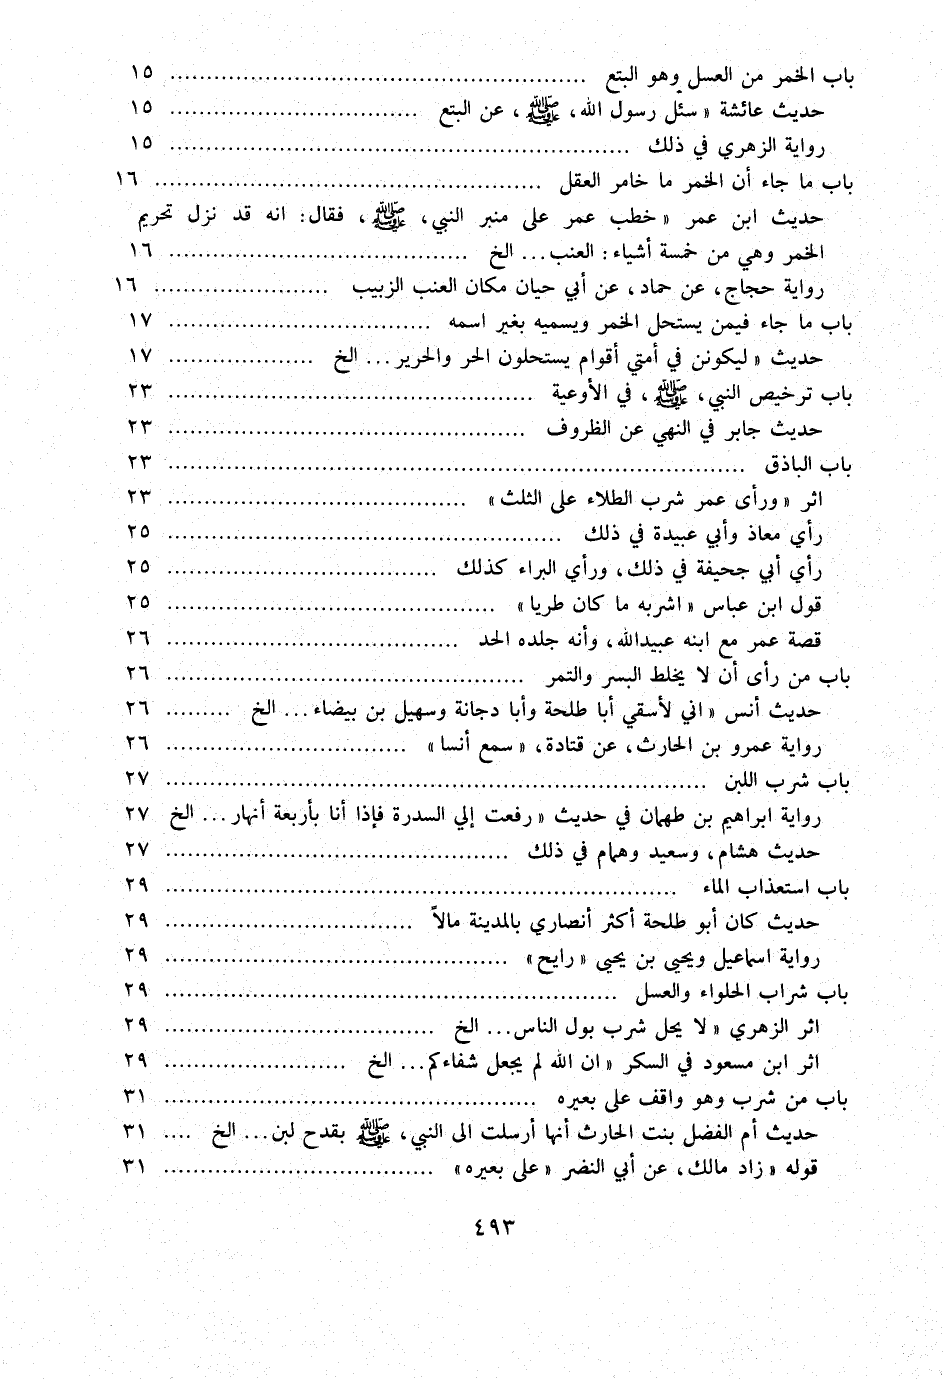 باب الخمر من العسل وهو البتع ........................................................ ١٥
حديث عائشة « سئل رسول الله، ﷺ، عن البتع .................................. ١٥
رواية الزهري في ذلك ............................................................... ١٥
باب ما جاء أن الخمر ما خامر العقل ..................................................... ١٦
حديث ابن عمر « خطب عمر على منبر النبي، ﷺ، فقال: انه قد نزل تحريم
الخمر وهي من خمسة أشياء: العنب... الخ ......................................... ١٦
رواية حجاج، عن حماد، عن أبي حيان مكان العنب الزبيب ........................ ١٦
باب ما جاء فيمن يستحل الخمر ويسميه بغير اسمه .................................... ١٧
حديث « ليكونن في أمتي أقوام يستحلون الحر والحرير... الخ .................... ١٧
باب ترخيص النبي، ﷺ، في الأوعية .................................................. ٢٣
حديث جابر في النهي عن الظروف ................................................. ٢٣
باب الباذق ............................................................................... ٢٣
اثر « ورأى عمر شرب الطلاء على الثلث » ......................................... ٢٣
رأي معاذ وأبي عبيدة في ذلك ...................................................... ٢٥
رأي أبي جحيفة في ذلك، ورأي البراء كذلك ..................................... ٢٥
قول ابن عباس « اشربه ما كان طريا » ............................................. ٢٥
قصة عمر مع ابنه عبيدالله، وأنه جلده الحد ........................................ ٢٦
باب من رأى أن لا يخلط البسر والتمر ................................................. ٢٦
حديث أنس « اني لأسقي أبا طلحة وأبا دجانة وسهيل بن بيضاء... الخ ......... ٢٦
رواية عمرو بن الحارث، عن قتادة، « سمع أنسا » ................................. ٢٦
باب شرب اللبن .......................................................................... ٢٧
رواية ابراهيم بن طهمان في حديث « رفعت إلي السدرة فإذا أنا بأربعة أنهار... الخ ٢٧
حديث هشام، وسعيد وهمام في ذلك ............................................... ٢٧
باب استعذاب الماء ...................................................................... ٢٩
حديث كان أبو طلحة أكثر أنصاري بالمدينة مالاً .................................. ٢٩
رواية اسماعيل ويحيى بن يحيى « رايح » ............................................... ٢٩
باب شراب الحلواء والعسل .............................................................. ٢٩
اثر الزهري « لا يحل شرب بول الناس... الخ ..................................... ٢٩
اثر ابن مسعود في السكر « ان الله لم يجعل شفاءكم... الخ ......................... ٢٩
باب من شرب وهو واقف على بعيره ................................................... ٣١
حديث أم الفضل بنت الحارث أنها أرسلت الى النبي، ﷺ بقدح لبن... الخ .... ٣١
قوله « زاد مالك، عن أبي النضر « على بعيره» ..................................... ٣١
٤٩٣